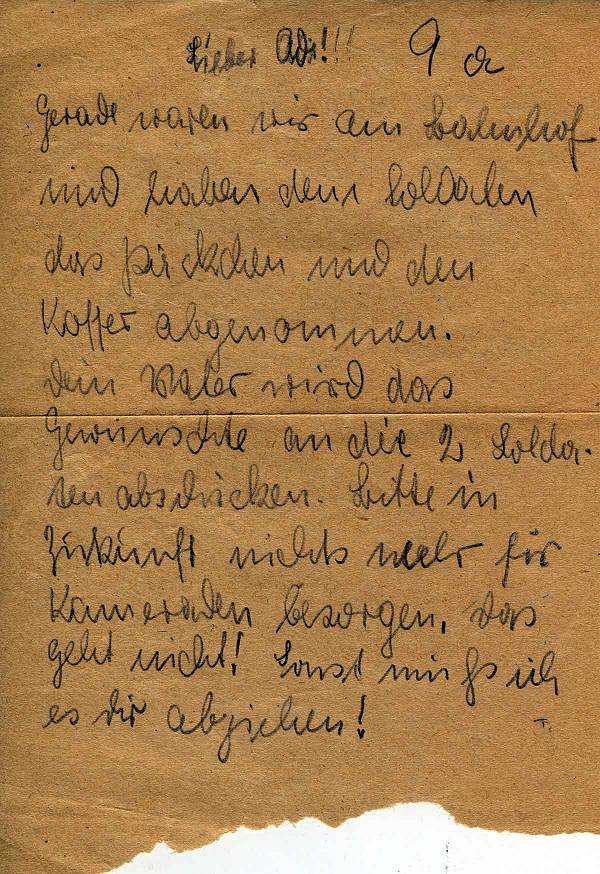 Lieber Adi!!! 9 a
Gerade waren wir am Bahnhof
und haben dem Soldaten
das Päckchen und den
Koffer abgenommen.
Dein Vater wird das
Gewünschte an die 2 Solda-
ten abschicken. Bitte in
Zukunft nichts mehr für
Kameraden besorgen, das
geht nicht! Sonst muss ich
es dir abziehen!